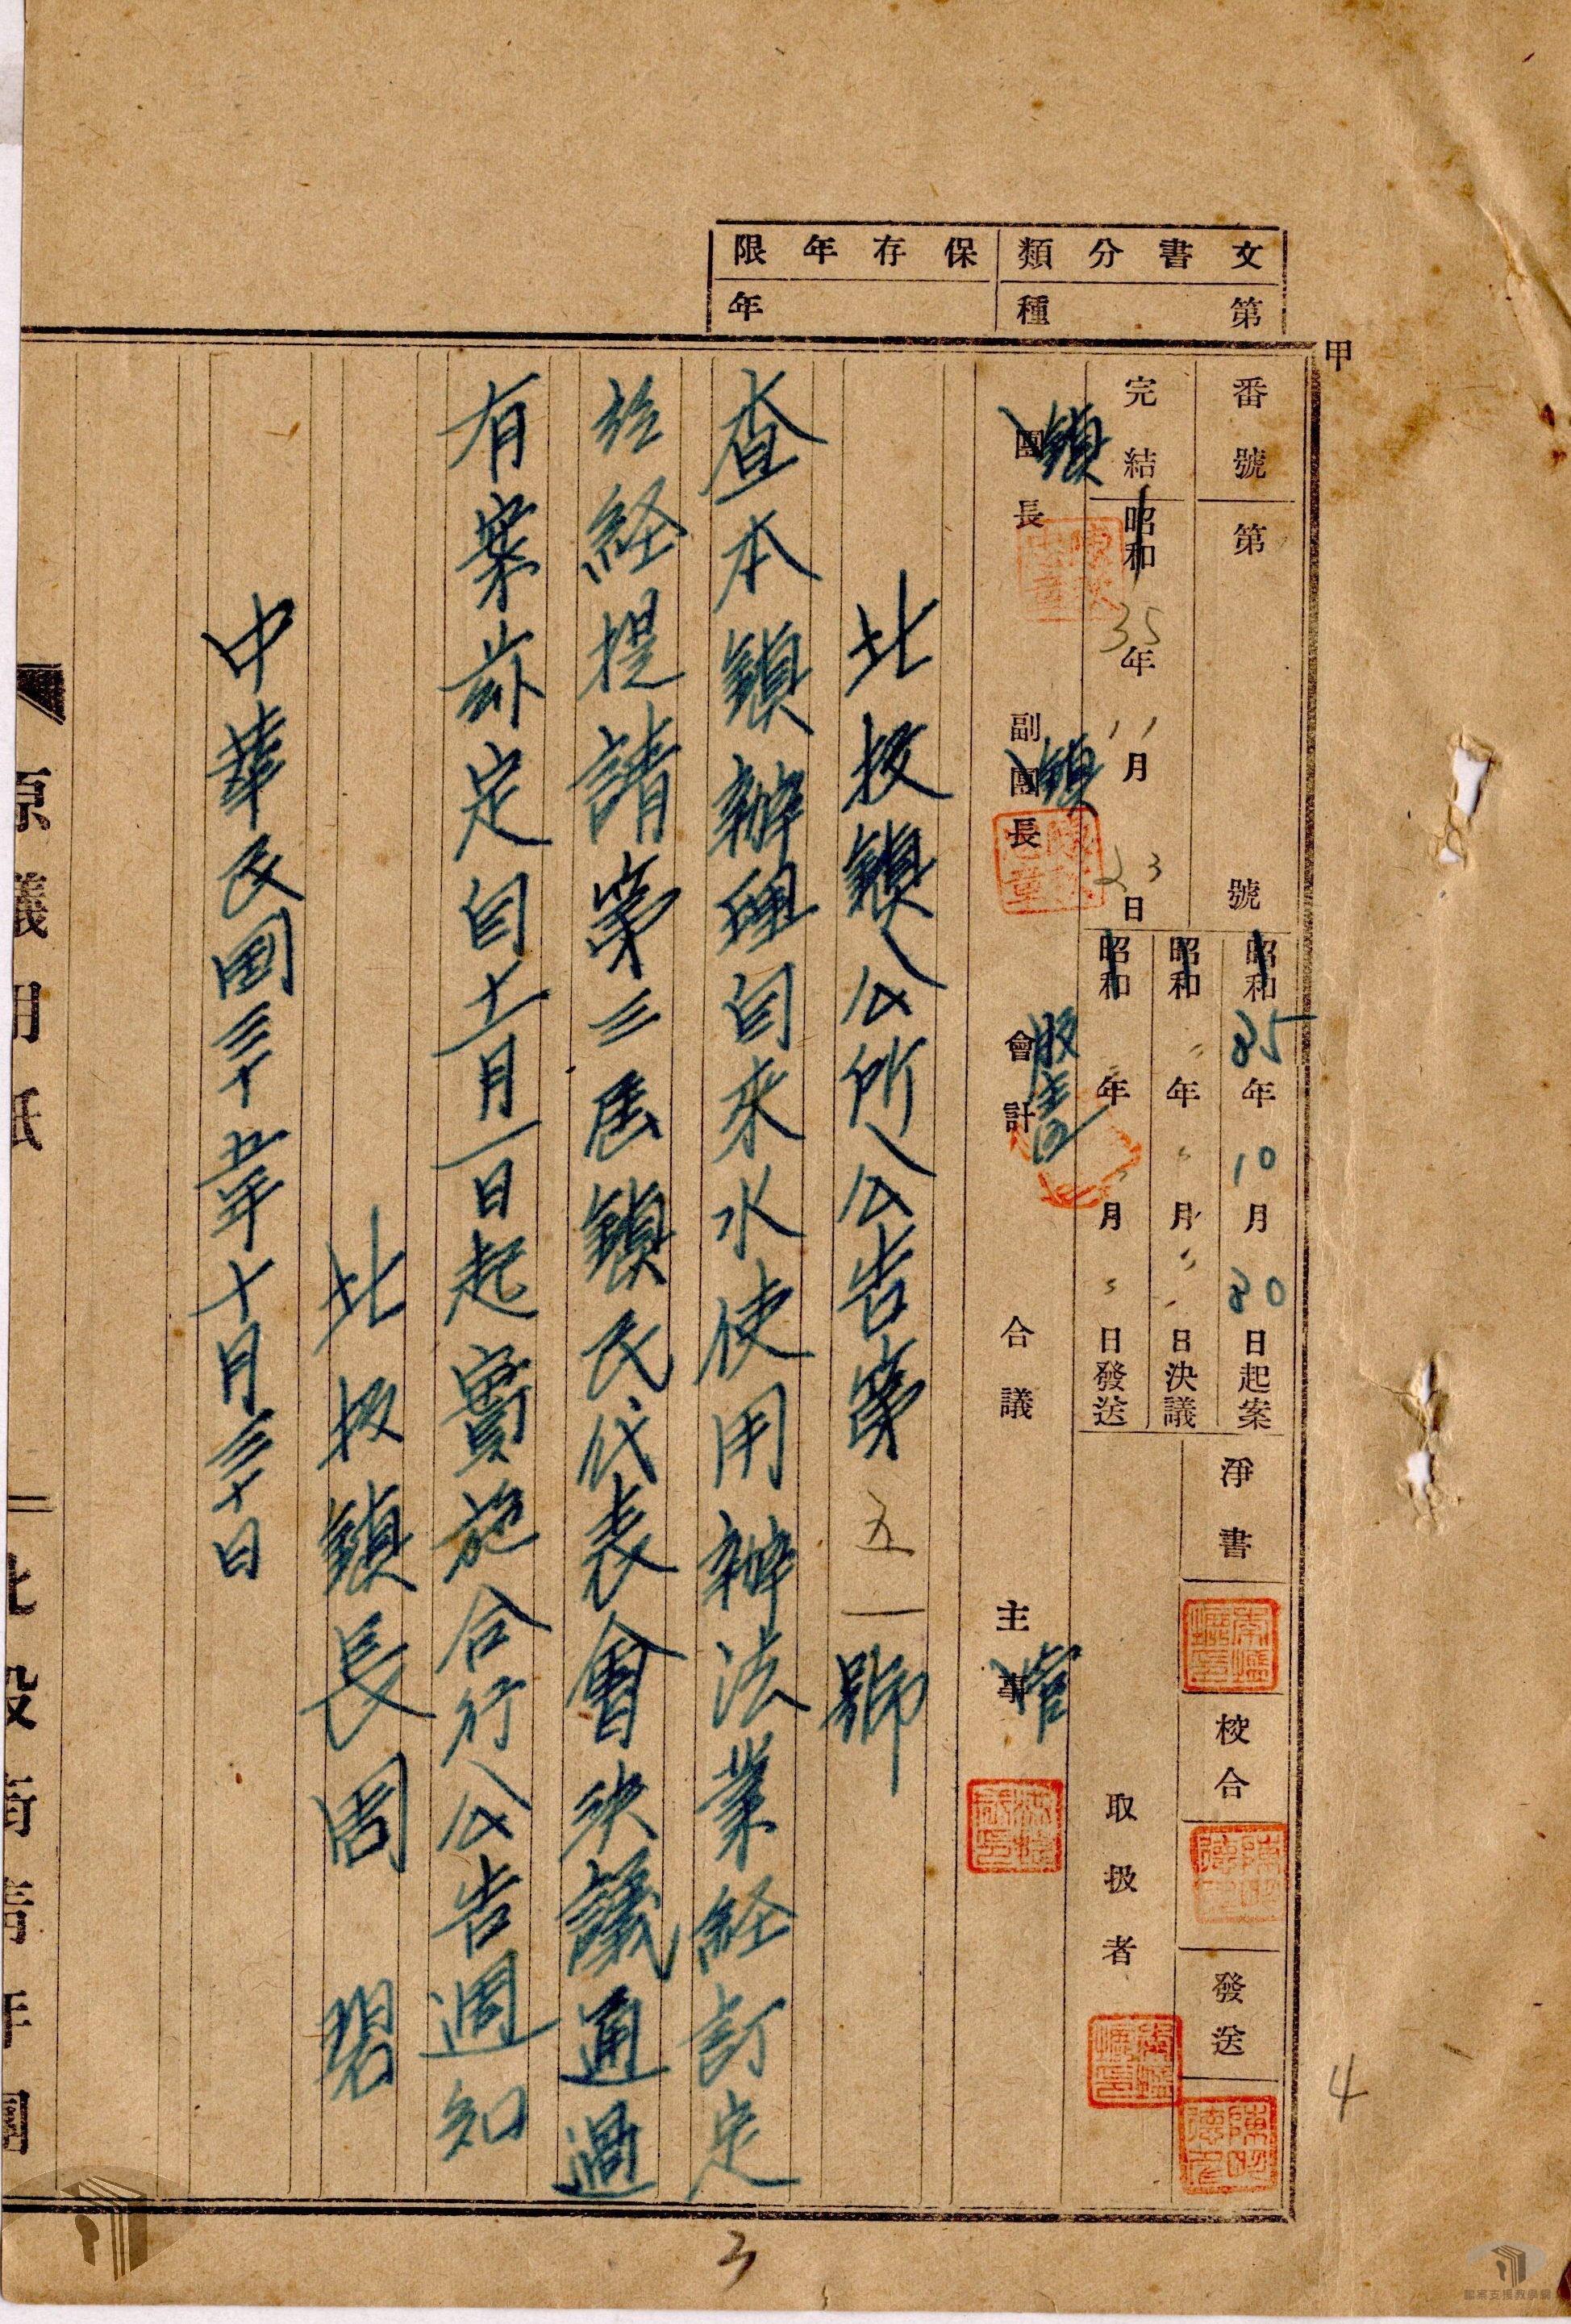 文書分類
保存年限
第　種
年
甲
番號 第 號
完結 昭和 35年 11月 23日
昭和 35年 10月 30日起案
昭和 〃年 〃月 〃日決議
昭和 〃年 〃月 〃日發送
淨書
校合
發送
取扱者
團長 鎮
副團長 鎮
會計 股長
合議
主事 管
北投鎮公所公告第五一號
查本鎮辦理自來水使用辦法業經訂定
於經提請第三届鎮民代表會決議通過
有案茲定自十一月一日起實施合行公告週知
北投鎮長周碧
中華民國三十五年十月三十日
原議用紙
北投街靑年團
3
4
檔案支援教學網